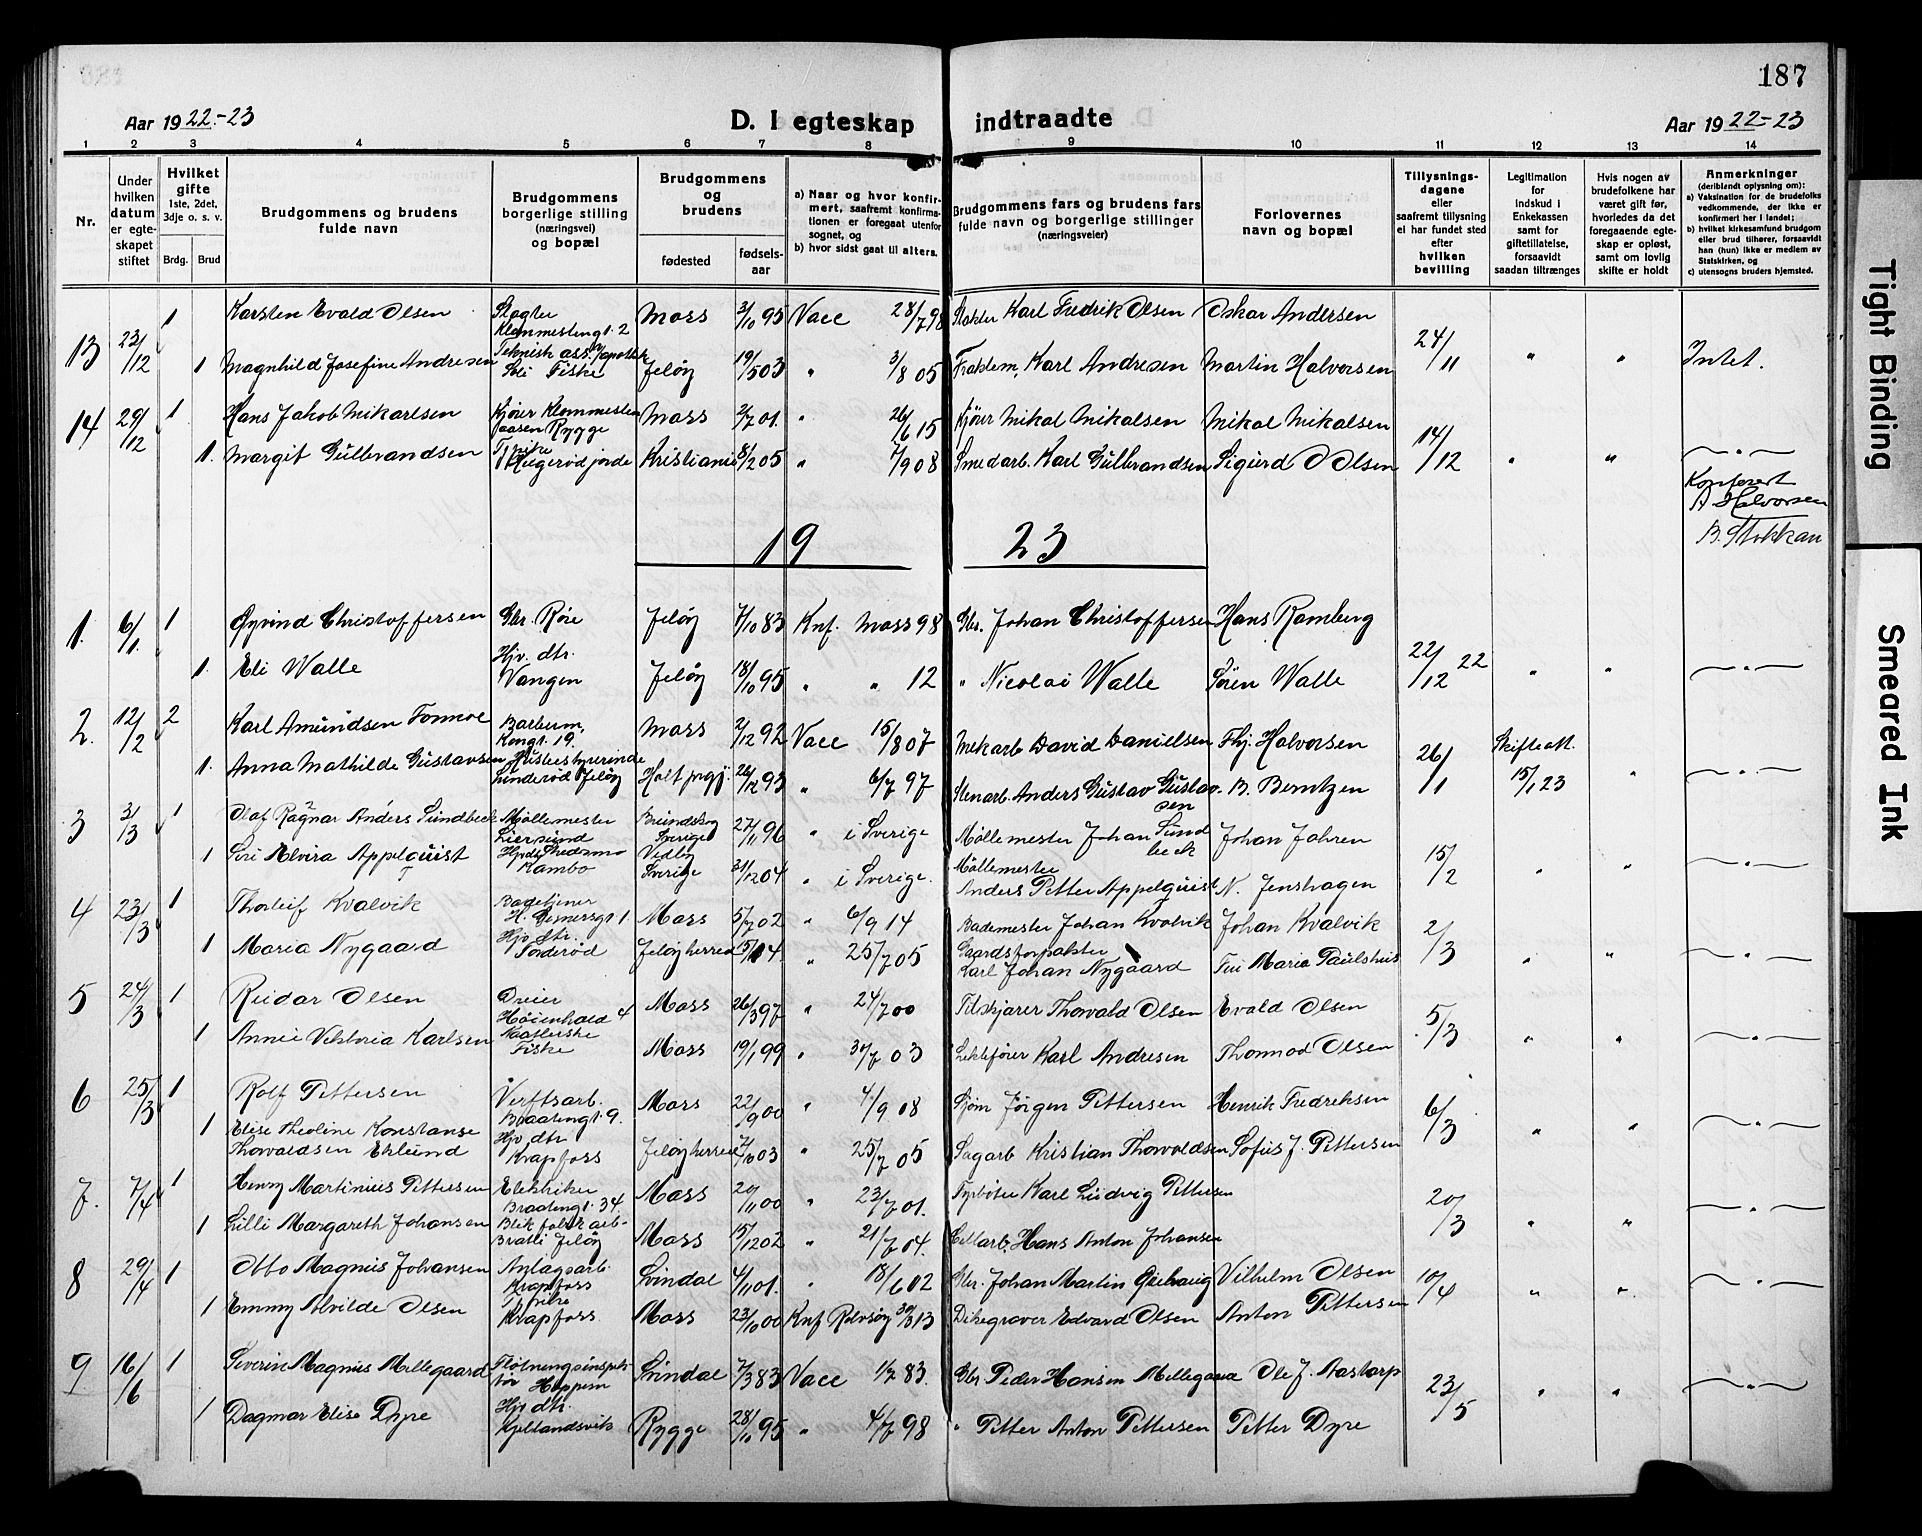 187
Aar 1922-23
D. I egteskap indtraadte
Aar 1922-23
1 2 3 4 5 6 7 8 9 10 11 12 13 14
Nr.
Under hvilken datum er egteskapet stiftet
Hvilket gifte 1ste, 2det, 3dje o. s. v.
Brdg. Brud
Brudgommens og brudens fulde navn
Brudgommens borgerlige stilling (næringsvei) og bopæl
Brudgommens og brudens
fødested
fødselsaar
a) Naar og hvor konfirmert, saafremt konfirmationen er foregaat utenfor sognet, og
b) hvor sidst gaat til alters.
Brudgommens fars og brudens fars fulde navn og borgerlige stillinger (næringsveier)
Forlovernes navn og bopæl
Tillysningsdagene eller saafremt tillysning ei har fundet sted efter hvilken bevilling
Legitimation for indskud i Enkekassen samt for giftetillatelse, forsaavidt saadan tiltrænges
Hvis nogen av brudefolkene har været gift før, hvorledes da det foregaaende egteskap er opløst, samt om lovlig skifte er holdt
Anmerkninger (deriblandt oplysning om):
a) Vaksination for de brudefolks vedkommende, der ikke er konfirmert her i landet;
b) hvilket kirkesamfund brudgom eller brud tilhører, forsaavidt han (hun) ikke er medlem av Statskirken, og
c) utensogns bruders hjemsted.
13 23/12 1 Karsten Evald Olsen Slagter Klommesteng t. 2 Moss 3/10 95 Vacc 28/7 98 Slakter Karl Fredrik Olsen Oskar Andersen 24/11 " " Intet.
1 Magnhild Josefine Andresen Teknisk ass. v/apothek Jeløy 19/5 03 " 3/8 05 Karl Andresen Martin Halvorsen
14 29/12 1 Hans Jakob Mikarlsen Kjører Klommesten aasen Rygge Moss 2/7 01. " 26/6 15 Kjører Mikal Mikalsen Mikal Mikalsen 14/12 " "
1. Margit Gulbrandsen Kristiania 8/2 05 " 7/9 08 Smedarb. Karl Gulbrandsen Sigurd Olsen
Konferert
A Halvorsen
B. Stokkan
1923
1. 6/1 1 Øyvind Christoffersen Gbr. Røre Jeløy 7/10 83 Knf. Moss 98 Gbr. Johan Christoffersen Hans Ramberg 22/12 22 " "
1. Eli Walle Hjv. dtr. Vangen Jeløy 18/10 95 " " 12 " Nicolai Walle Søren Walle
2. 12/2 2 Karl Amundsen Kongt. 19. Moss 2/12 92 Vacc 15/8 07 Mekarb David Danielsen Thj. Halvorsen 26/11 Skifteatt. 15/1 23 "
1. Anna Mathilde Gustavsen Husbestyrerinde Jeløy Holt 26/12 93 " 6/7 97 Stenarb. Anders Gustav Gustavsen B. Berntzen
3 3/3 1 Olaf Ragnar Anders Sundbeck Møllemester Sverige 27/11 96 " i Sverige Møllemester Johan Sundbeck Johan Jahren 15/2 " "
1 Siri Elvira Appelquist Kambo Sverige 31/12 04 " i Sverige. Møllemester Anders Petter Appelquist N. Jenshagen
4 23/3 1 Thorleif Kvalvik Badetjener Moss 5/7 02 " 6/9 14 Bademester Johan Kvalvik Johan Kvalvik 2/3 " "
1 Maria Nygaard Hjv dtr. Jeløy herred " 25/7 05 Gaardsforpakter Carl Johan Nygaard Frii Maria Paulshus
5 24/3 1 Reidar Olsen Dreier Høienhald 4 Moss 26/3 97 " 24/7 00 Filskjærer Thorvald Olsen Evald Olsen 5/3 " "
1 Annie Viktoria Karlsen Moss 19/1 99 " 30/7 03 Lektefører Karl Andresen Thormod Olsen
6 25/3 1 Rolf Pettersen Verftsarb. Braatengt. 9. Moss 22/9 00 " 4/9 08 Sjøm Jørgen Pettersen Henrik Fredriksen 6/3 " "
1 Elise Theoline Konstanse Thorvaldsen Eklund Hjv dtr Krapfoss Jeløy herred 7/10 03 " 25/7 05 Sagarb Kristian Thorvaldsen Sofus J. Pettersen
7. 7/4 1 Henry Martinius Pettersen Elektriker Braatengt. 34. Moss 20/11 00 " 23/7 01. Fyrbøter Karl Ludvig Pettersen 20/3 " "
1 Lilli Margareth Johansen Blik fabrik arb. Bratli Jeløy Moss 15/12 02 " 21/7 04. Cellarb. Hans Anton Johansen
8 29/4 1 Otto Magnus Johansen Anlagsarb. Krapfoss Svindal 4/11 01. " 18/6 02 Gbr. Johan Martin Vilhelm Olsen 10/4 " "
1 Emmy Alvilde Olsen Krapfoss. Moss 23/10 00 Knf Rolvsøy 30/3 13 Dikegraver Edvard Olsen Anton Pettersen
9 16/6 1 Severin Magnus Mellegaard Fløtningsinspektør Høppern Svindal 7/3 83 Vacc 1/7 83. Gbr Peder Hansen Mellegaard Ole J. Aastorp 23/5 " "
1 Dagmar Elise Dyre Hjv dtr. Kjellandsvik Rygge 28/10 95 " 4/7 98 " Petter Anton Pettersen Petter Dyre
Tight Binding
Smeared Ink